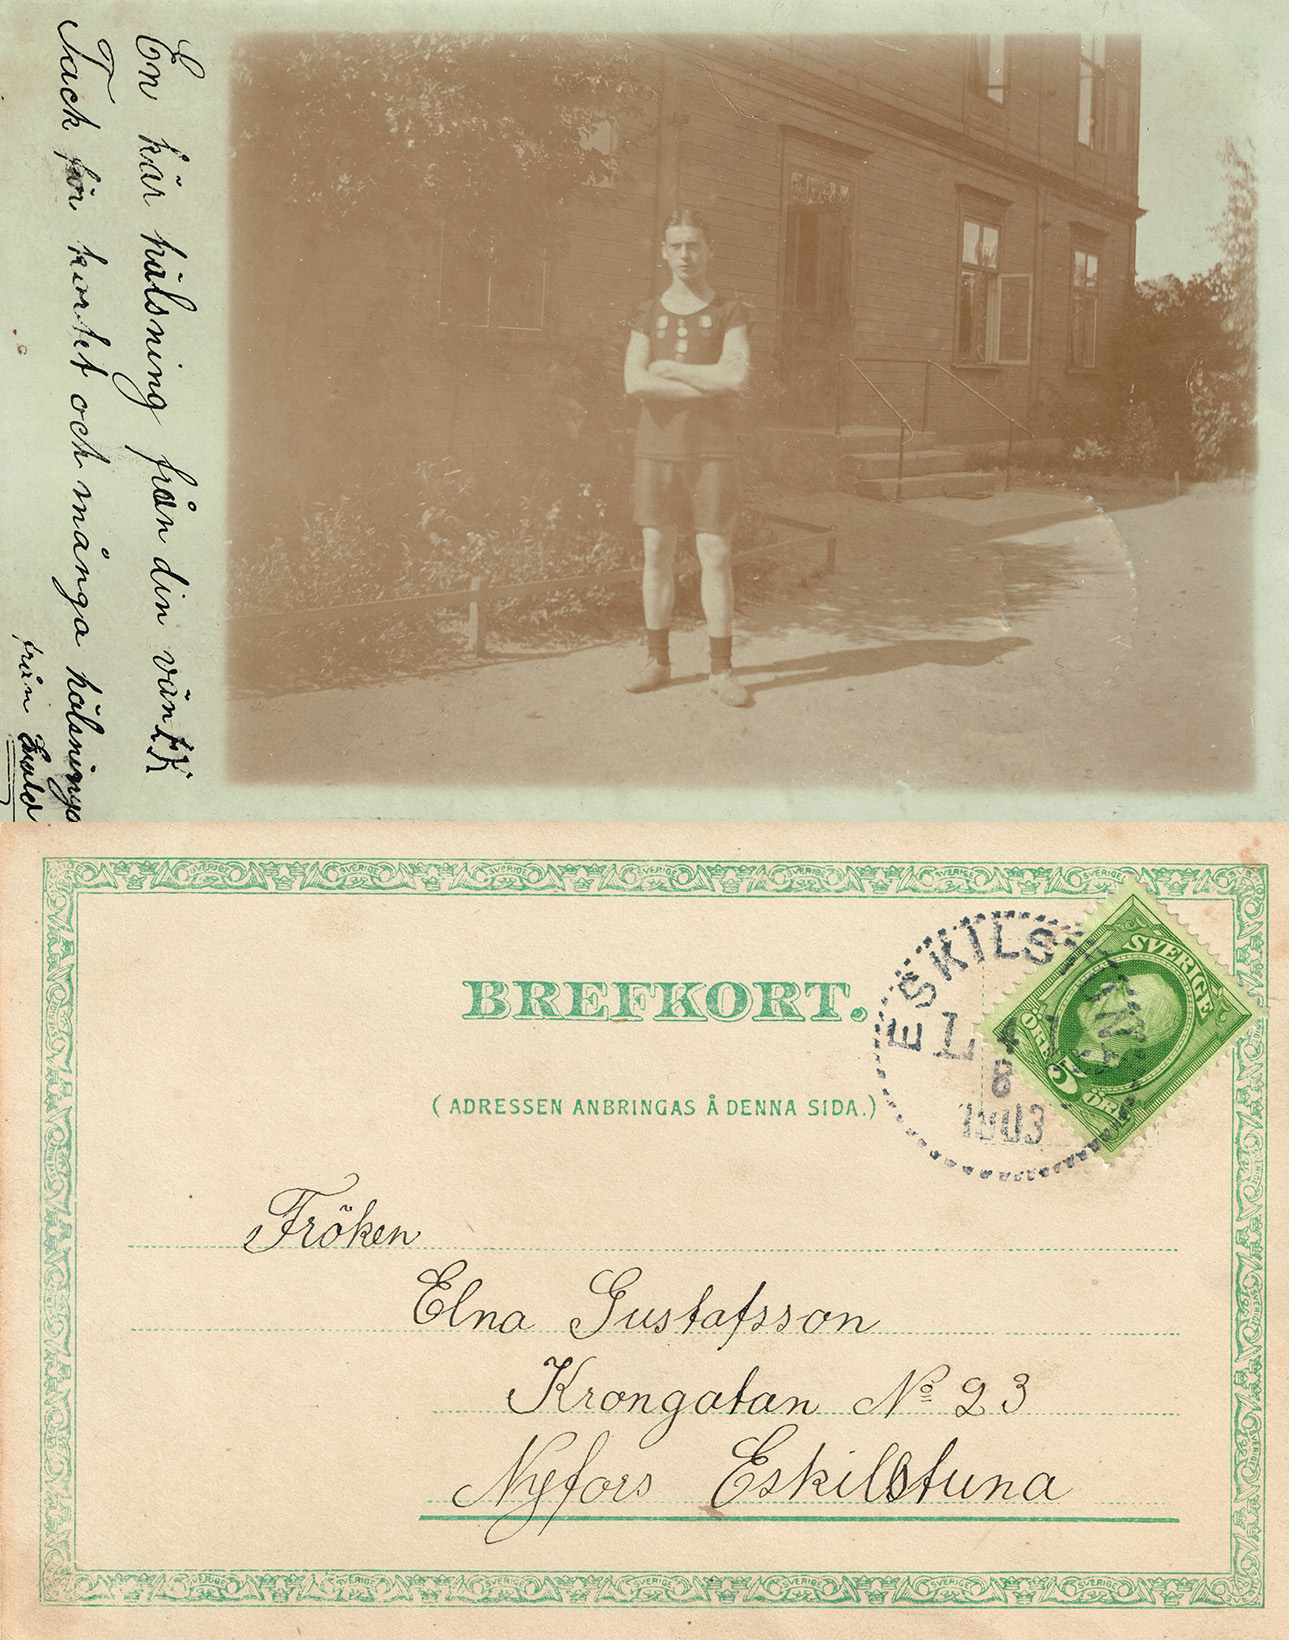 En kär hälsning från din vän EK
Tack för kortet och många hälsningar
från Ewald
BREFKORT.
(ADRESSEN ANBRINGAS Å DENNA SIDA.)
ESKILSTUNA
8
1903
SVERIGE
5
ÖRE
ÖRE
Fröken
Elna Gustafsson
Krongatan No 23
Nyfors Eskilstuna